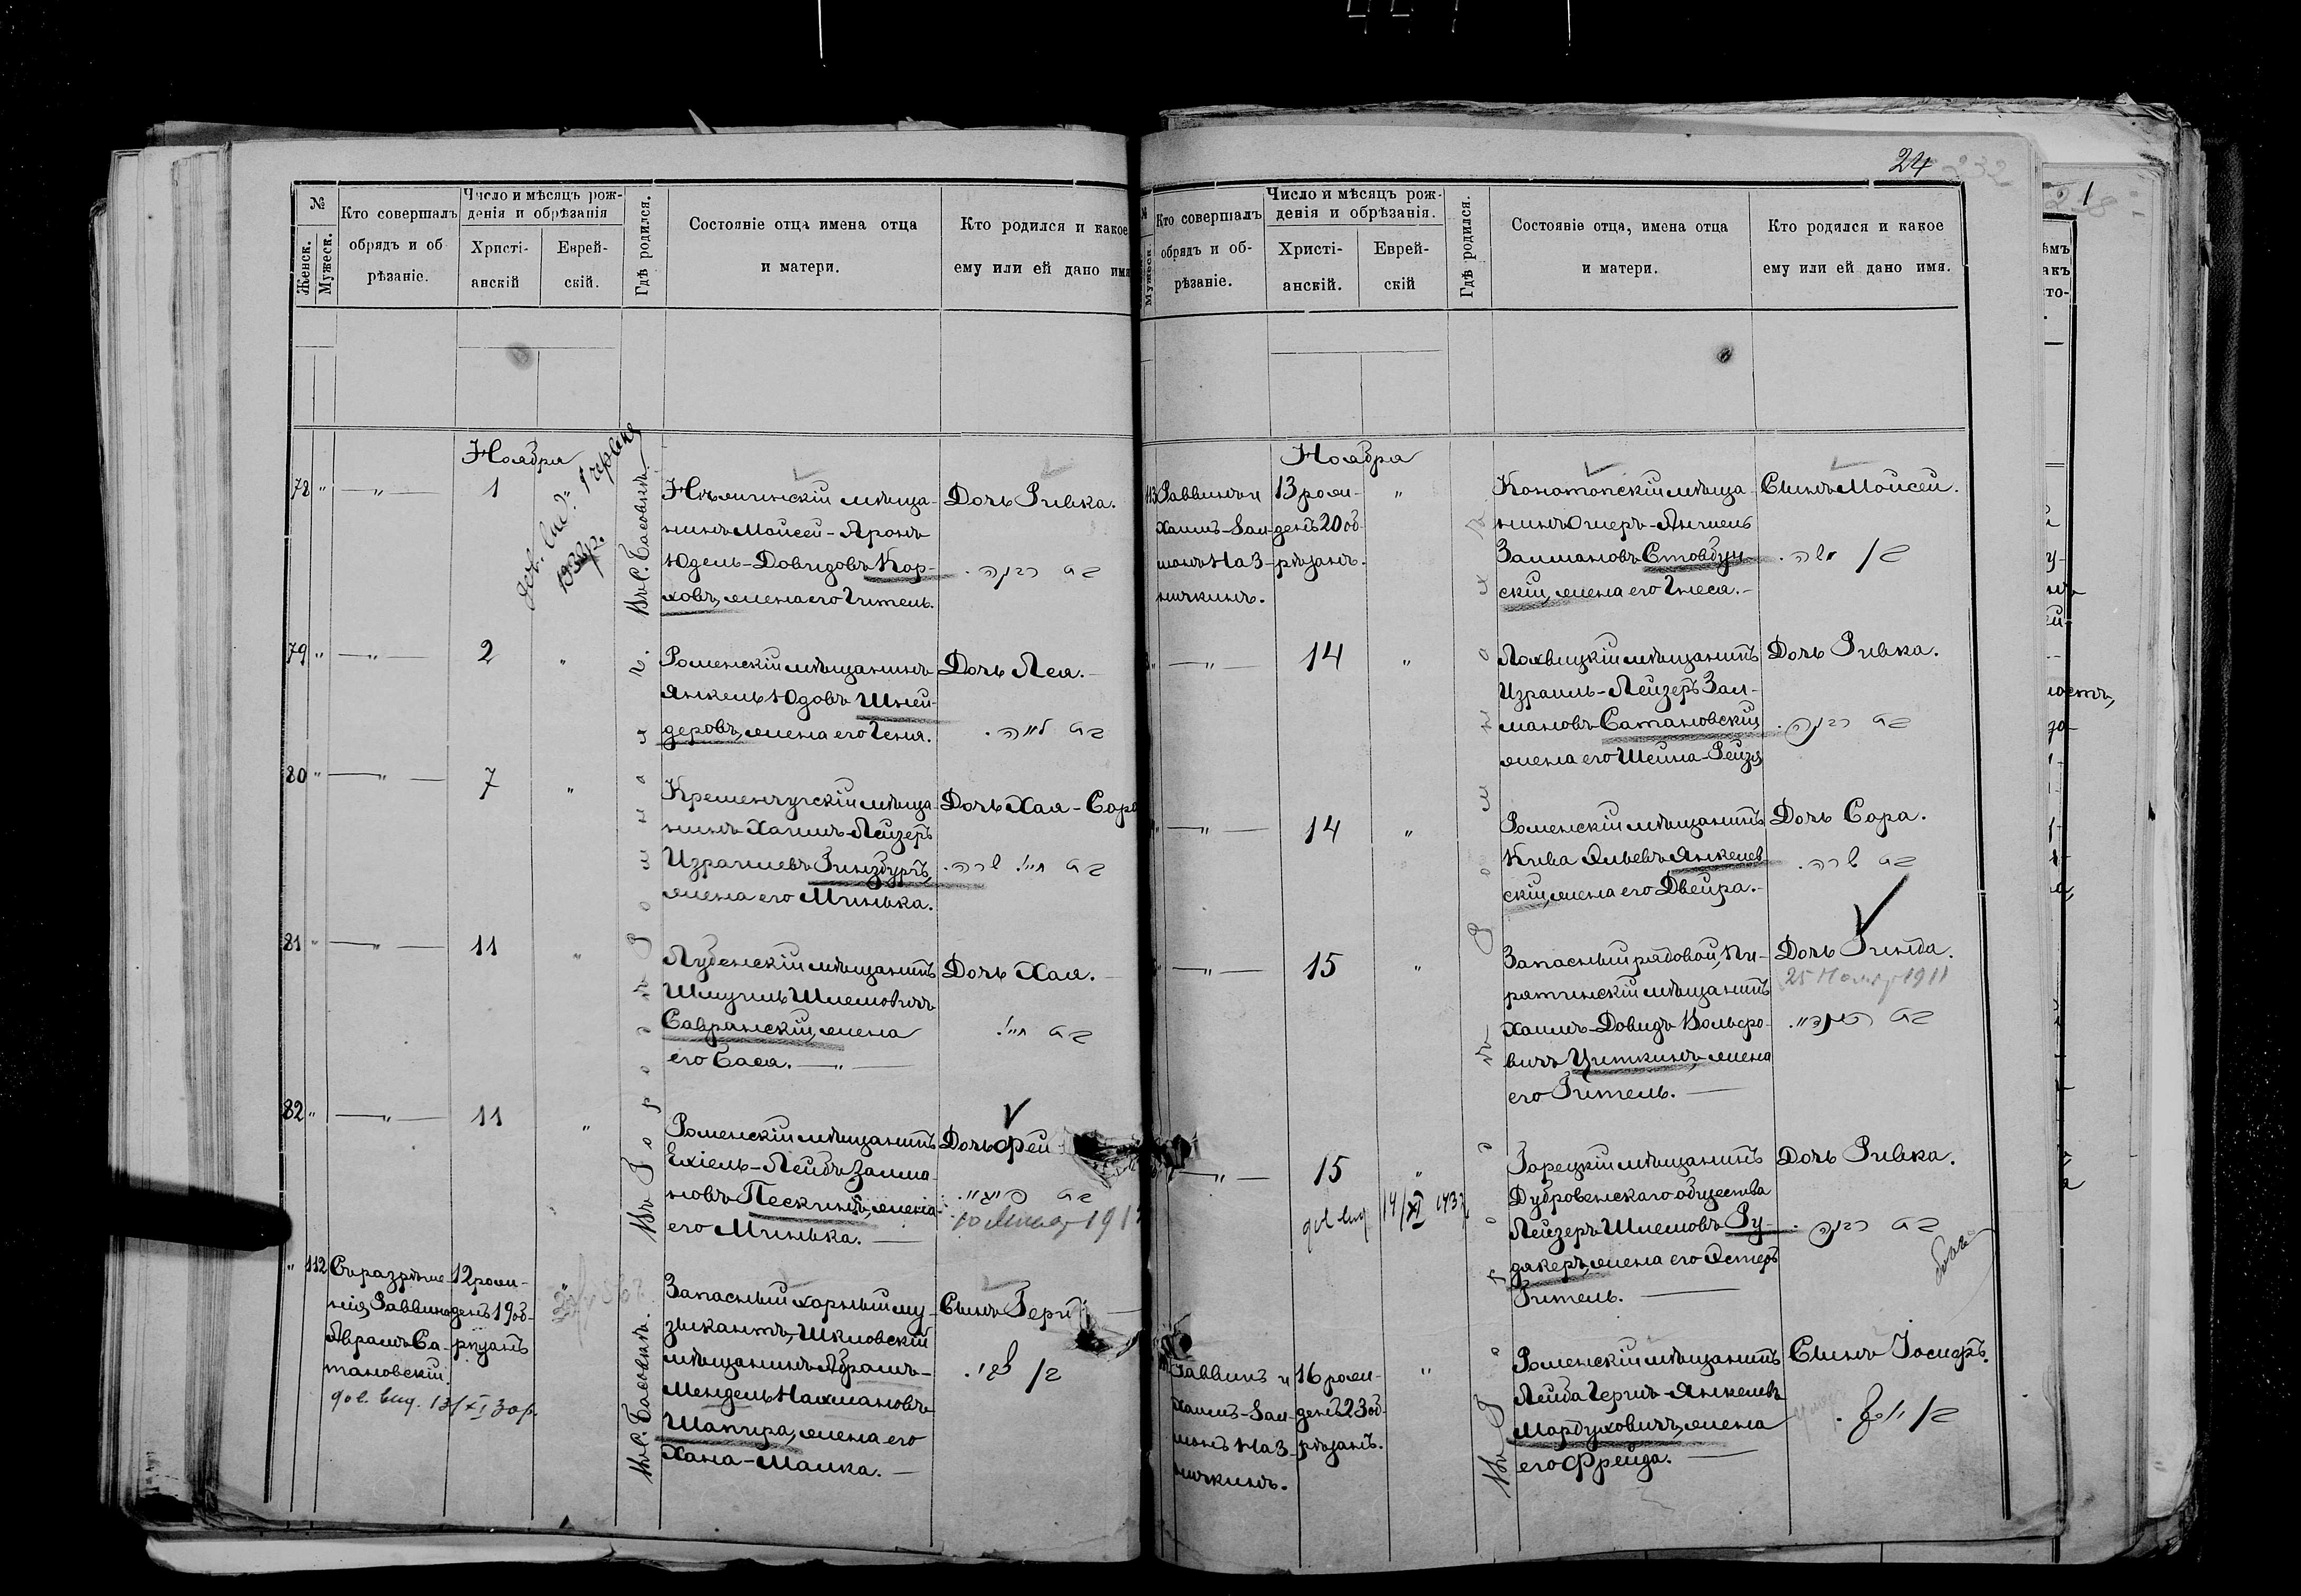 24
№
Женск.
Мужеск.
Кто совершалъ
обрядъ и об-
рѣзаніе.
Число и мѣсяцъ рож-
денія и обрѣзанія
Христі-
анскій
Еврей-
скій.
Гдѣ родился.
Состояніе отца имена отца
и матери.
Кто родился и какое
ему или ей дано имя
Ноября
78 " — " — 1
Въ С. Басовкѣ.
Нѣжинскій мѣща-
нинъ Мойсей-Аронъ
Юдель-Довидовъ Кор-
ховъ, жена его Гитель.
Дочь Ривка.
79 " — " — 2 "
Роменскій мѣщанинъ
Янкель Юдовъ Шней-
деровъ, жена его Геня.
Дочь Лея.
80 " — " — 7 "
Кременчугскій мѣща-
нинъ Хаимъ-Лейзеръ
Израилевъ Гинзбургъ,
жена его Минька.
Дочь Хая-Сара
81 " — " — 11 "
Лубенскій мѣщанинъ
Шмуиль Шлемовичъ
Савранскій, жена
его Бася. — " —
Дочь Хая.
82 " — " — 11 "
Въ Городѣ Ромнахъ
Роменскій мѣщанинъ
Ехіель-Лейбъ Залма-
новъ Пескинъ, жена
его Минька. —
Дочь Фей
" 112 Съ разрѣше-
нія Раввина
Абрамъ Са-
тановскій.
12 рож-
денъ 19 об-
рѣзанъ
Въ С. Басовкѣ.
Запасный хорный му-
зыкантъ, Шкловскій
мѣщанинъ Абрамъ-
Мендель Нахмановъ
Шапира, жена его
Хана-Малка. —
Сынъ Герц
Мужеск.
Кто совершалъ
обрядъ и об-
рѣзаніе.
Число и мѣсяцъ рож-
денія и обрѣзанія.
Христі-
анскій.
Еврей-
скій
Гдѣ родился.
Состояніе отца, имена отца
и матери.
Кто родился и какое
ему или ей дано имя.
Ноября
113 Раввинъ и
Хаимъ-Зал-
манъ Наз-
ничкинъ.
13 рож-
денъ 20 об-
рѣзанъ.
"
Конотопскій мѣща-
нинъ Ошеръ-Аншель
Залмановъ Столбун-
скій, жена его Гнеся.
Сынъ Мойсей.
— " — 14 "
Лохвицкій мѣщанинъ
Израиль-Лейзеръ Зал-
мановъ Сатановскій
жена его Шейна-Рейзя
Дочь Ривка.
— " — 14 "
Роменскій мѣщанинъ
Кива Эльевъ Янкелев
скій, жена его Двейра.
Дочь Сара.
— " — 15 "
Запасный рядовой, Пи-
рятинскій мѣщанинъ
Хаимъ-Довидъ Вольфо-
вичъ Циткинъ, жена
его Гитель. —
Дочь Гинда.
25 1911
— " — 15 "
Горецкій мѣщанинъ
Дубровенскаго общества
Лейзеръ Шлемовъ Ру-
дякеръ, жена его Эстеръ
Гитель. —
Дочь Ривка.
Раввинъ и
Хаимъ-Зал-
манъ Наз-
ничкинъ.
16 рож-
денъ 23 об-
рѣзанъ.
"
Въ Городѣ Ромнахъ
Роменскій мѣщанинъ
Лейба Герцъ-Янкелевъ
Мордуховичъ, жена
его Фрейда. —
Сынъ Іосифъ.